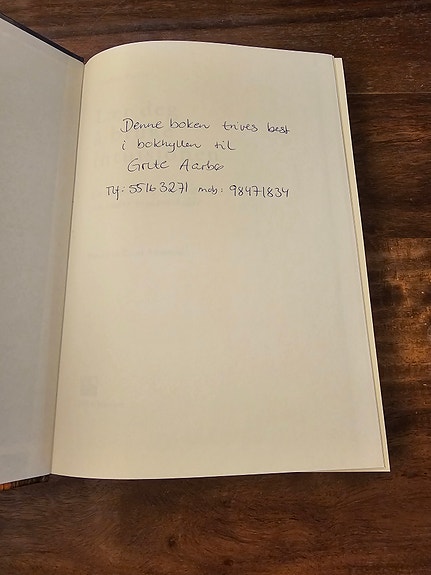 Denne boken trives best
i bokhyllen til
Grete Aarbø
Tlf: 55163271 mob: 98471834